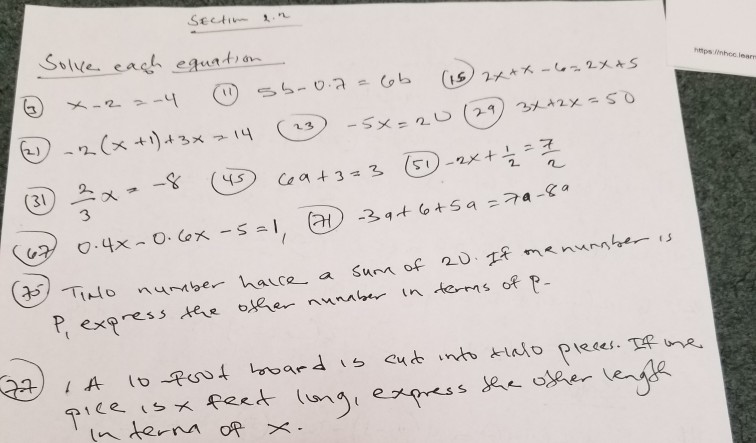 Section 2.2
https://nhcc.learn
Solve each equation
7 x - 2 = -4 11 5b - 0.7 = 6b 15 2x + x - 6 = 2x + 5
21 -2(x + 1) + 3x = 14 23 -5x = 20 29 3x + 2x = 50
31 2/3 x = -8 45 6a + 3 = 3 51 -2x + 1/2 = 7/2
67 0.4x - 0.6x - 5 = 1, 71 -3a + 6 + 5a = 7a - 8a
75 Two number have a sum of 20. If one number is
P, express the other number in terms of P.
77 , A 10-foot board is cut into two pieces. If one
pice is x feet long, express the other length
in terms of x.